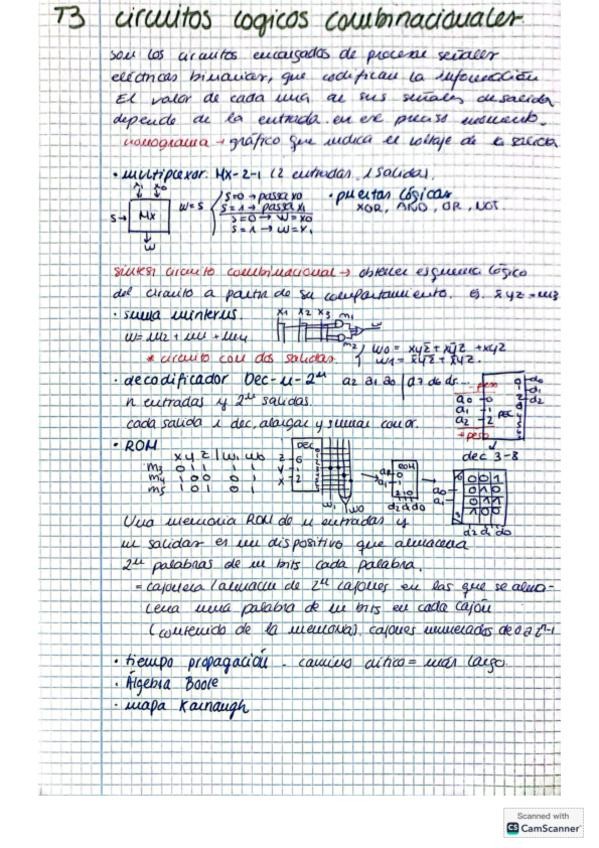 T3 circuitos logicos combinacionales
son los circuitos encargados de procesar señales
eléctricas binarias, que codifican la información
El valor de cada una de sus señales de salida
depende de la entrada en ese preciso momento.
cronograma → gráfico que indica el voltaje de la salida
• multiplexor. Mx-2-1 (2 entradas, 1 salidas).
x1 x0
S → Mx
w
w=s
s=0 → passa x0
s=1 → passa x1
s=0 → w=x0
s=1 → w=x1
• puertas lógicas
XOR, AND, OR, NOT.
síntesi circuito combinacional → obtener esquema lógico
del circuito a partir de su comportamiento. ej. x̄yz = m3
• suma minterms.
x1 x2 x3 m1
m2
w = m2 + m1 + m4
* circuito con dos salidas.
w0 = xyz̄ + x̄ȳz̄ + xyz
w1 = x̄yz̄ + x̄yz.
• decodificador Dec-n-2ⁿ a2 a1 a0 | d7 d6 d5...
n entradas y 2ⁿ salidas.
cada salida 1 dec, alargar y sumar con or.
- peso
a0 0
a1 1
a2 2
+ peso
DEC
d0
d1
d2
dec 3-8
• ROM
x y z | w1 w0
m3 0 1 1 1 1
m4 1 0 0 1
m5 1 0 1 0 1
DEC
z 0
y 1
x 2
w1 w0
ROM
a0 0
a1 1
d2 d1 d0
a0
a1
0 0 1
0 1 0
d2 d1 d0
Una memoria ROM de n entradas y
m salidas es un dispositivo que almacena
2ⁿ palabras de m bits cada palabra.
= cajonera (almacen de 2ⁿ cajones en las que se alma-
cena una palabra de m bits en cada cajón
(contenido de la memoria). cajones numerados de 0 a 2ⁿ-1
• tiempo propagación - camino crítico = más largo.
• Álgebra Boole
• mapa Karnaugh
Scanned with
CS CamScanner